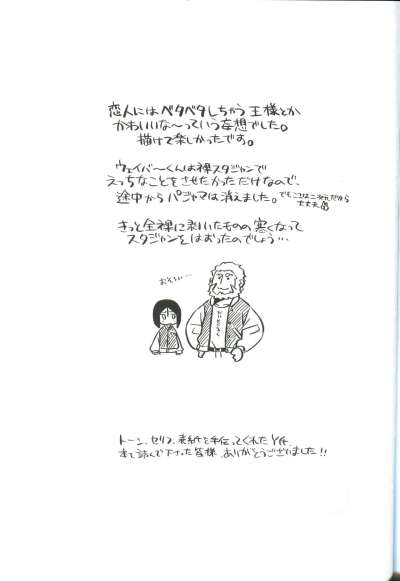 恋人にはベタベタしちゃう王様とか
かわいいな～っていう妄想でした。
描けて楽しかったです。
ウェイバーくんは裸スタジャンで
えっちなことをさせたかっただけなので、
途中からパジャマは消えました。でもここは二次元だから
大丈夫
きっと全裸に剥いたものの寒くなって
スタジャンをはおったのでしょう…
おそろい…
トーン、セリフ、表紙を手伝ってくれたY氏、
本を読んで下さった皆様、ありがとうございました!!